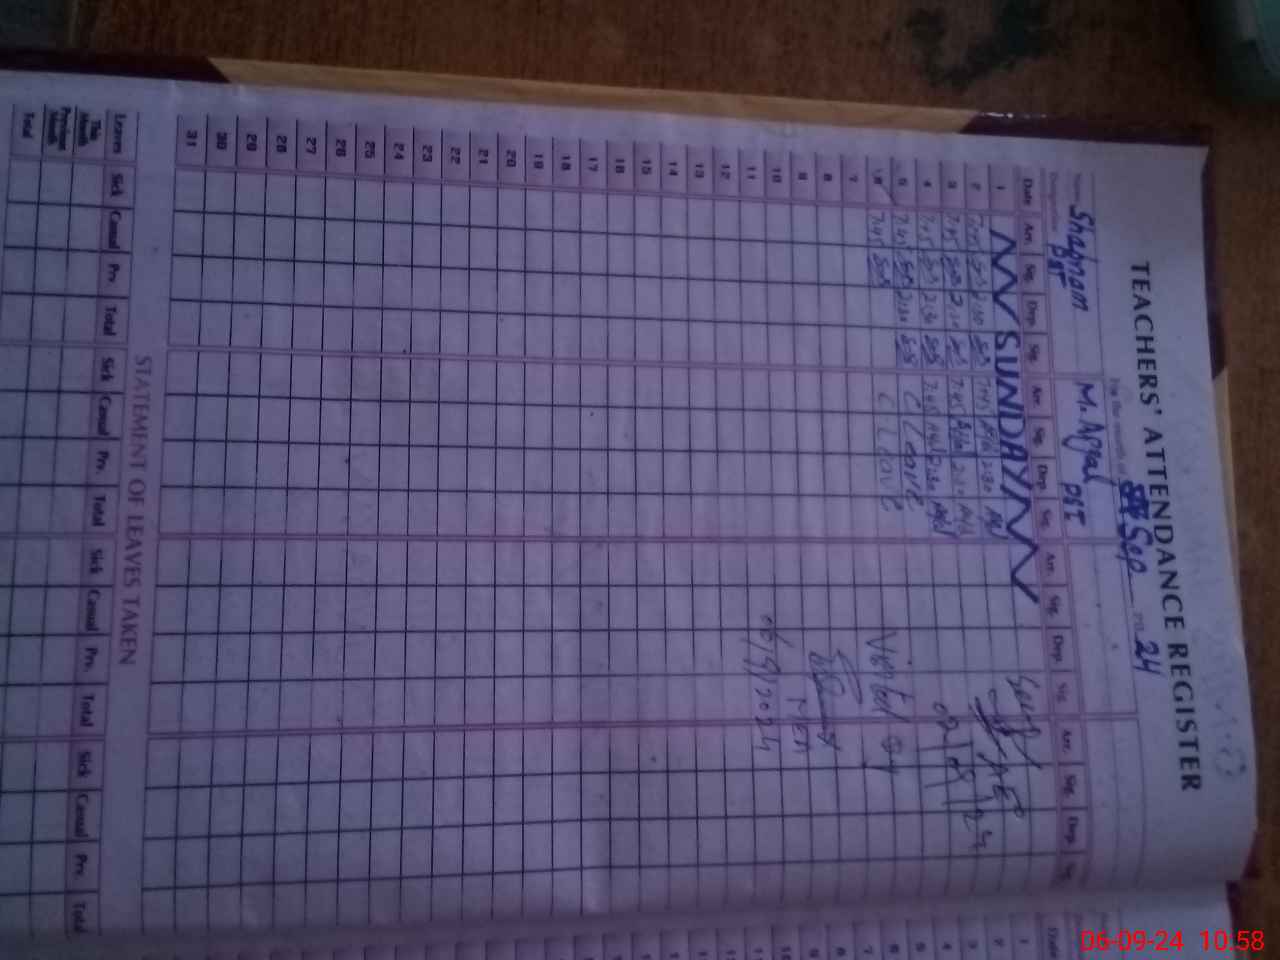 TEACHERS' ATTENDANCE REGISTER
For the month of Sep 2024
Name Shabnam M. Afzal
Designation PST PST
Date Arr. Sig. Dep. Sig. Arr. Sig. Dep. Sig. Arr. Sig. Dep. Sig. Arr. Sig. Dep. Sig.
1 SUNDAY
2 7:45 2:30 7:45 2:30
3 7:45 2:30 7:45 2:30
4 7:45 2:30 7:45 2:30
5 7:45 2:30 C Leave
6 7:45 C Leave
7
8
9
10
11
12
13
14
15
16
17
18
19
20
21
22
23
24
25
26
27
28
29
30
31
Visited by
MEA
06/9/2024
STATEMENT OF LEAVES TAKEN
Leaves Sick Casual Prv. Total Sick Casual Prv. Total Sick Casual Prv. Total Sick Casual Prv. Total
This Month
Previous Month
Total
06-09-24 10:58